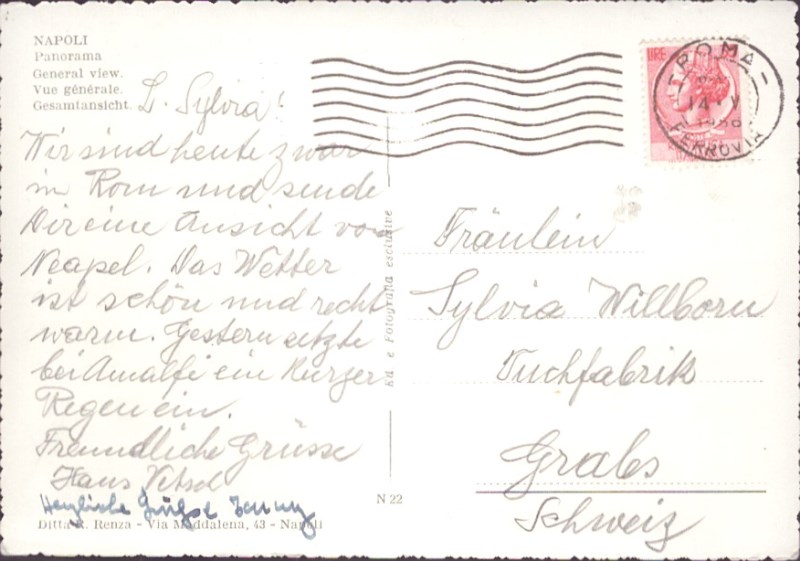 NAPOLI
Panorama
General view.
Vue générale.
Gesamtansicht.
L. Sylvia!
Wir sind heute zwar
in Rom und sende
Dir eine Ansicht von
Neapel. Das Wetter
ist schön und recht
warm. Gestern setzte
bei Amalfi ein kurzer
Regen ein.
Freundliche Grüsse
Hans
Herzliche Grüsse
Ditta R. Renza - Via Maddalena, 43 - Napoli
Ed. e Fotografia esclusive
N 22
LIRE
ROMA
14 V
FERROVIA
Fräulein
Sylvia Willborn
Tuchfabrik
Grabs
Schweiz